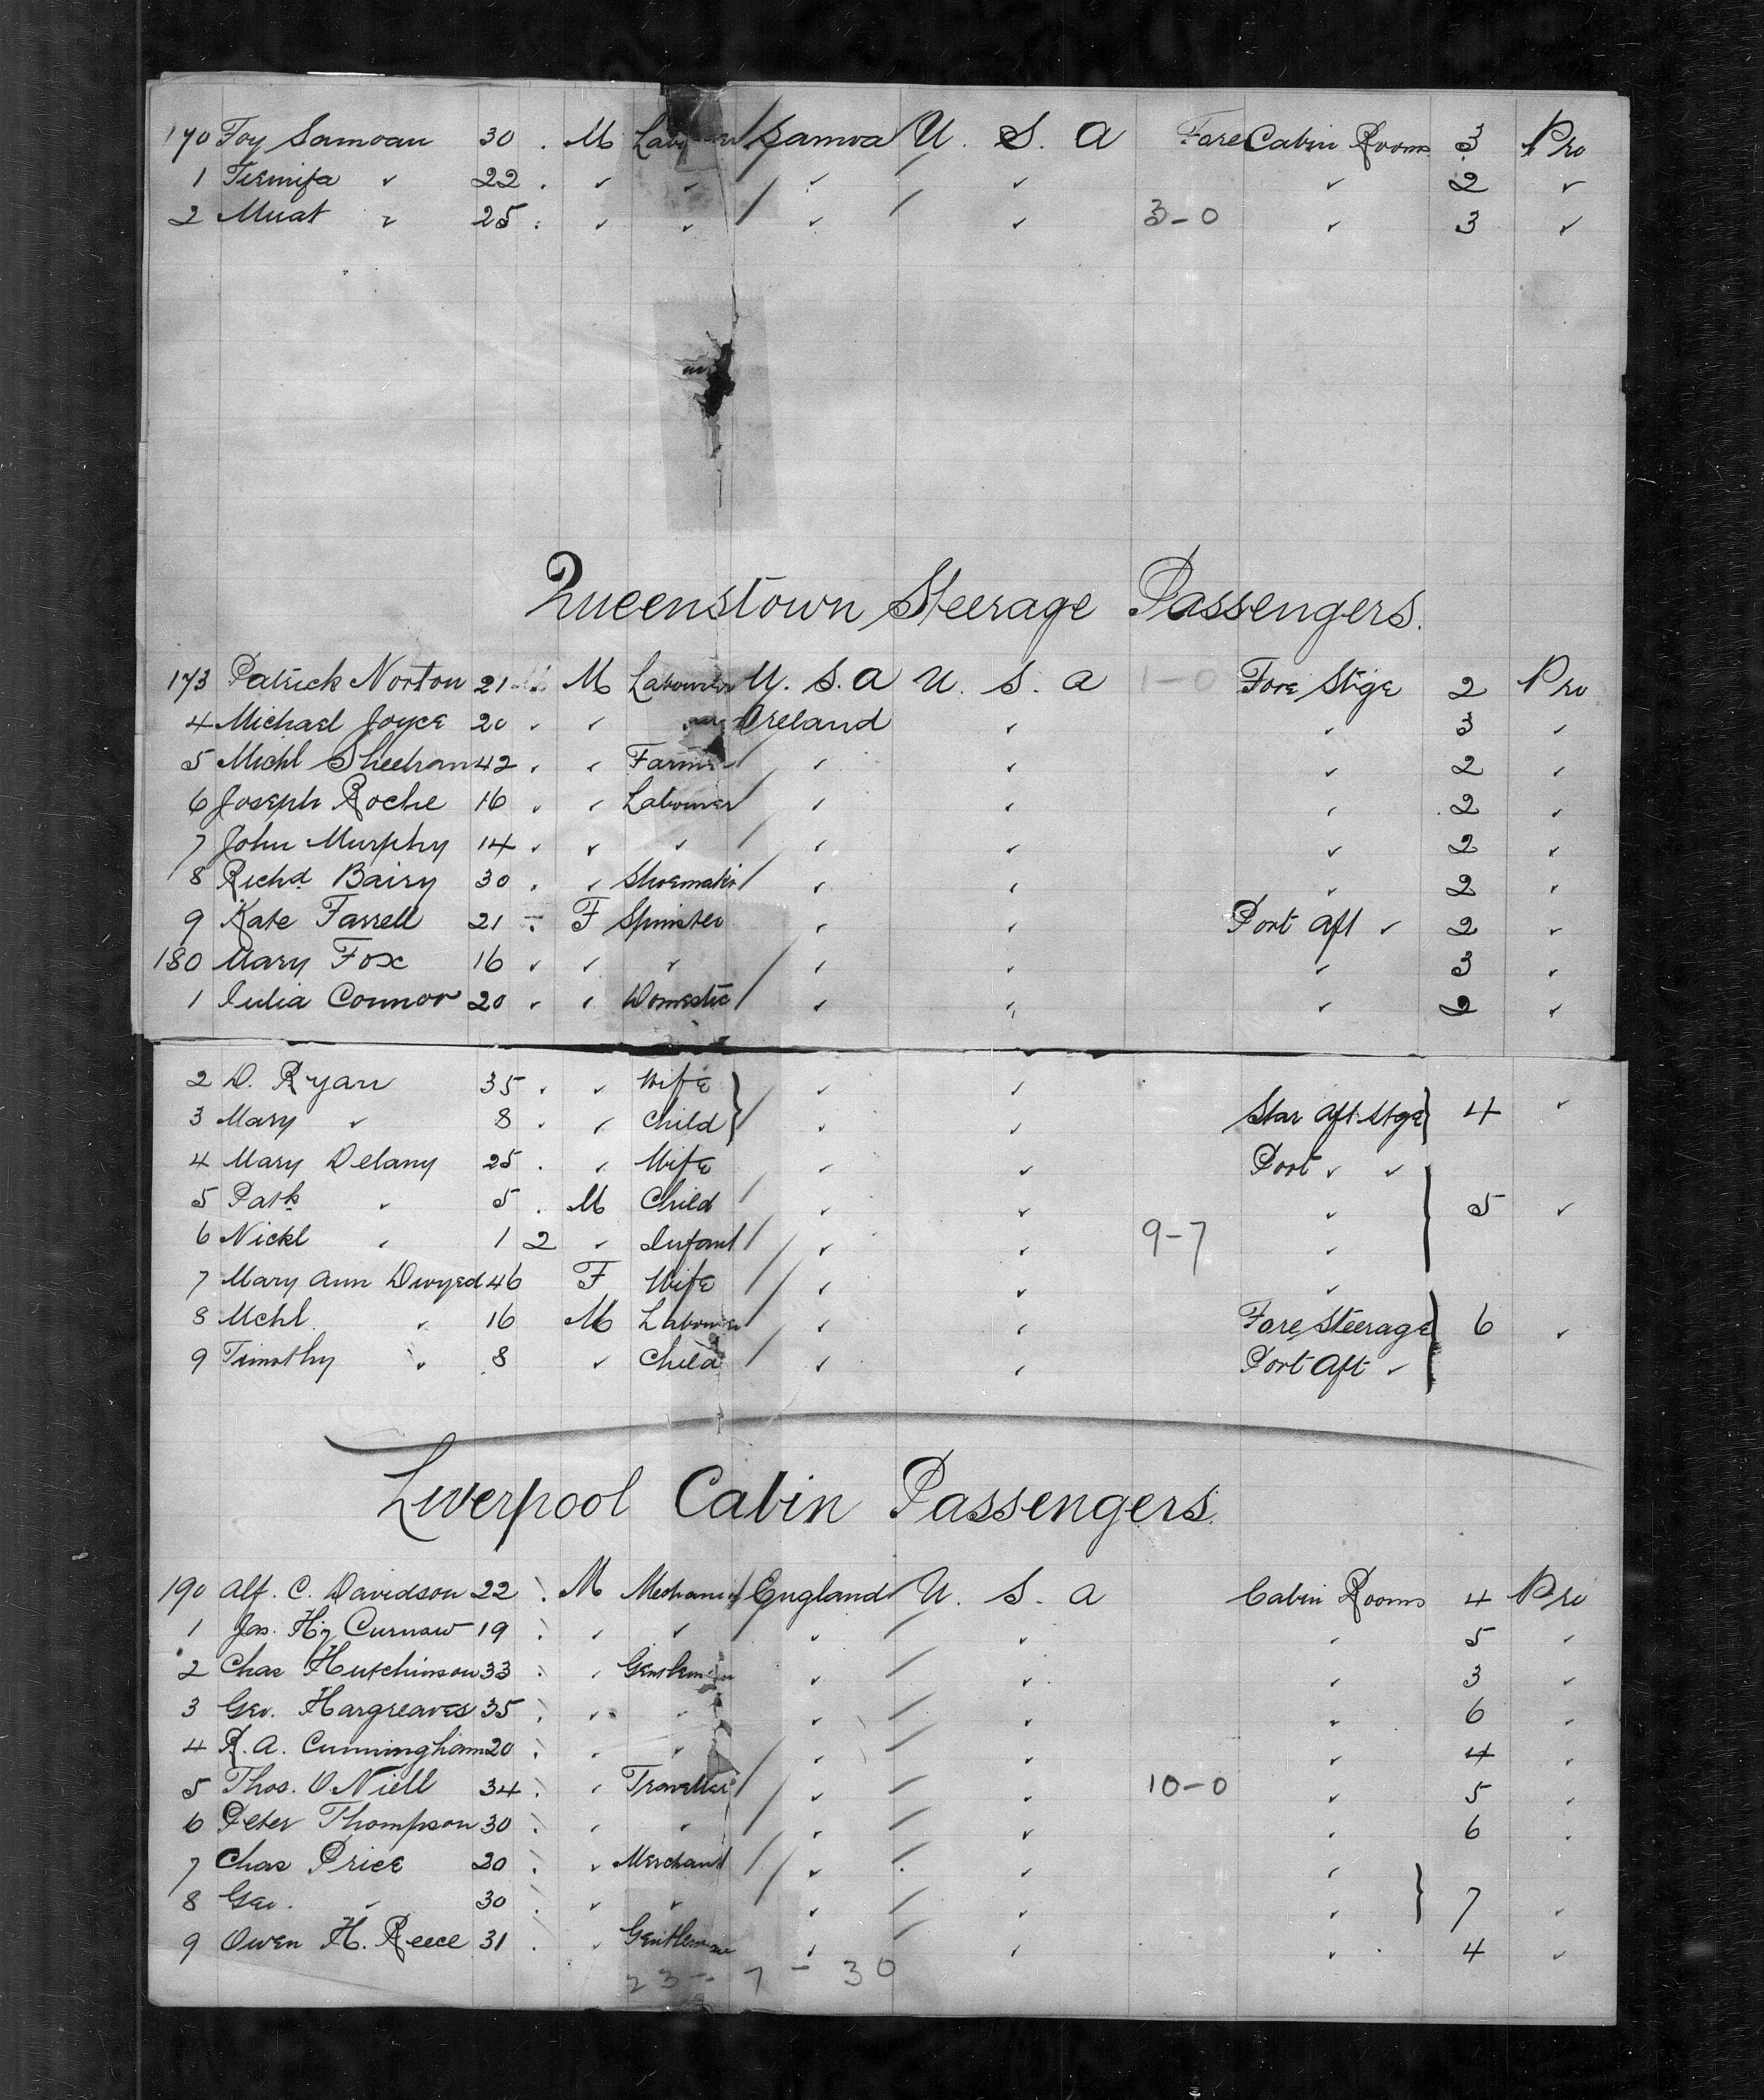 170 Foy Samoan 30 . M Labourer Samoa U. S. A Fore Cabin Rooms 3 Pro
1 Tiemifa " 22 . " " " " " 2 "
2 Muat " 25 . " " " " 3-0 " 3 "
Queenstown Steerage Passengers.
173 Patrick Norton 21 M Labourer U. S. A U. S. A 1-0 Fore Stge 2 Pro
4 Michael Joyce 20 " " " Ireland " " 3 "
5 Michl Sheehan 42 " " Farmer " " " 2 "
6 Joseph Roche 16 " " Labourer " " " 2 "
7 John Murphy 14 " " " " " " 2 "
8 Richd Bairy 30 " " Shoemaker " " " 2 "
9 Kate Farrell 21 " F Spinster " " Port Aft " 2 "
180 Mary Fox 16 " " " " " " 3 "
1 Julia Connor 20 " " Domestic " " " 2 "
2 D. Ryan 35 " " Wife " "
3 Mary " 8 " " Child " " Star Aft Stge 4 "
4 Mary Delany 25 " " Wife " " Port " "
5 Patk " 5 . M Child " " " 5 "
6 Nickl " 1 2 " Infant " " 9-7 "
7 Mary Ann Dwyed 46 F Wife " " "
8 Mchl. " 16 M Labourer " " Fore Steerage 6 "
9 Timothy " 8 " Child " " Port Aft "
Liverpool Cabin Passengers.
190 Alf. C. Davidson 22 M Mechanic England U. S. A Cabin Rooms 4 Pro
1 Jas. Hy Curnow 19 " " " " " " 5 "
2 Chas Hutchinson 33 " " Gentleman " " " 3 "
3 Geo. Hargreaves 35 " " " " " " 6 "
4 R. A. Cunningham 20 " " " " " " 4 "
5 Thos. O Niell 34 " " Traveller " " 10-0 " 5 "
6 Peter Thompson 30 " " " " " " 6 "
7 Chas Price 20 " " Merchant " " "
8 Geo. " 30 " " " " " " 7 "
9 Owen H. Reece 31 " " Gentleman " " " 4 "
23 - 7 - 30